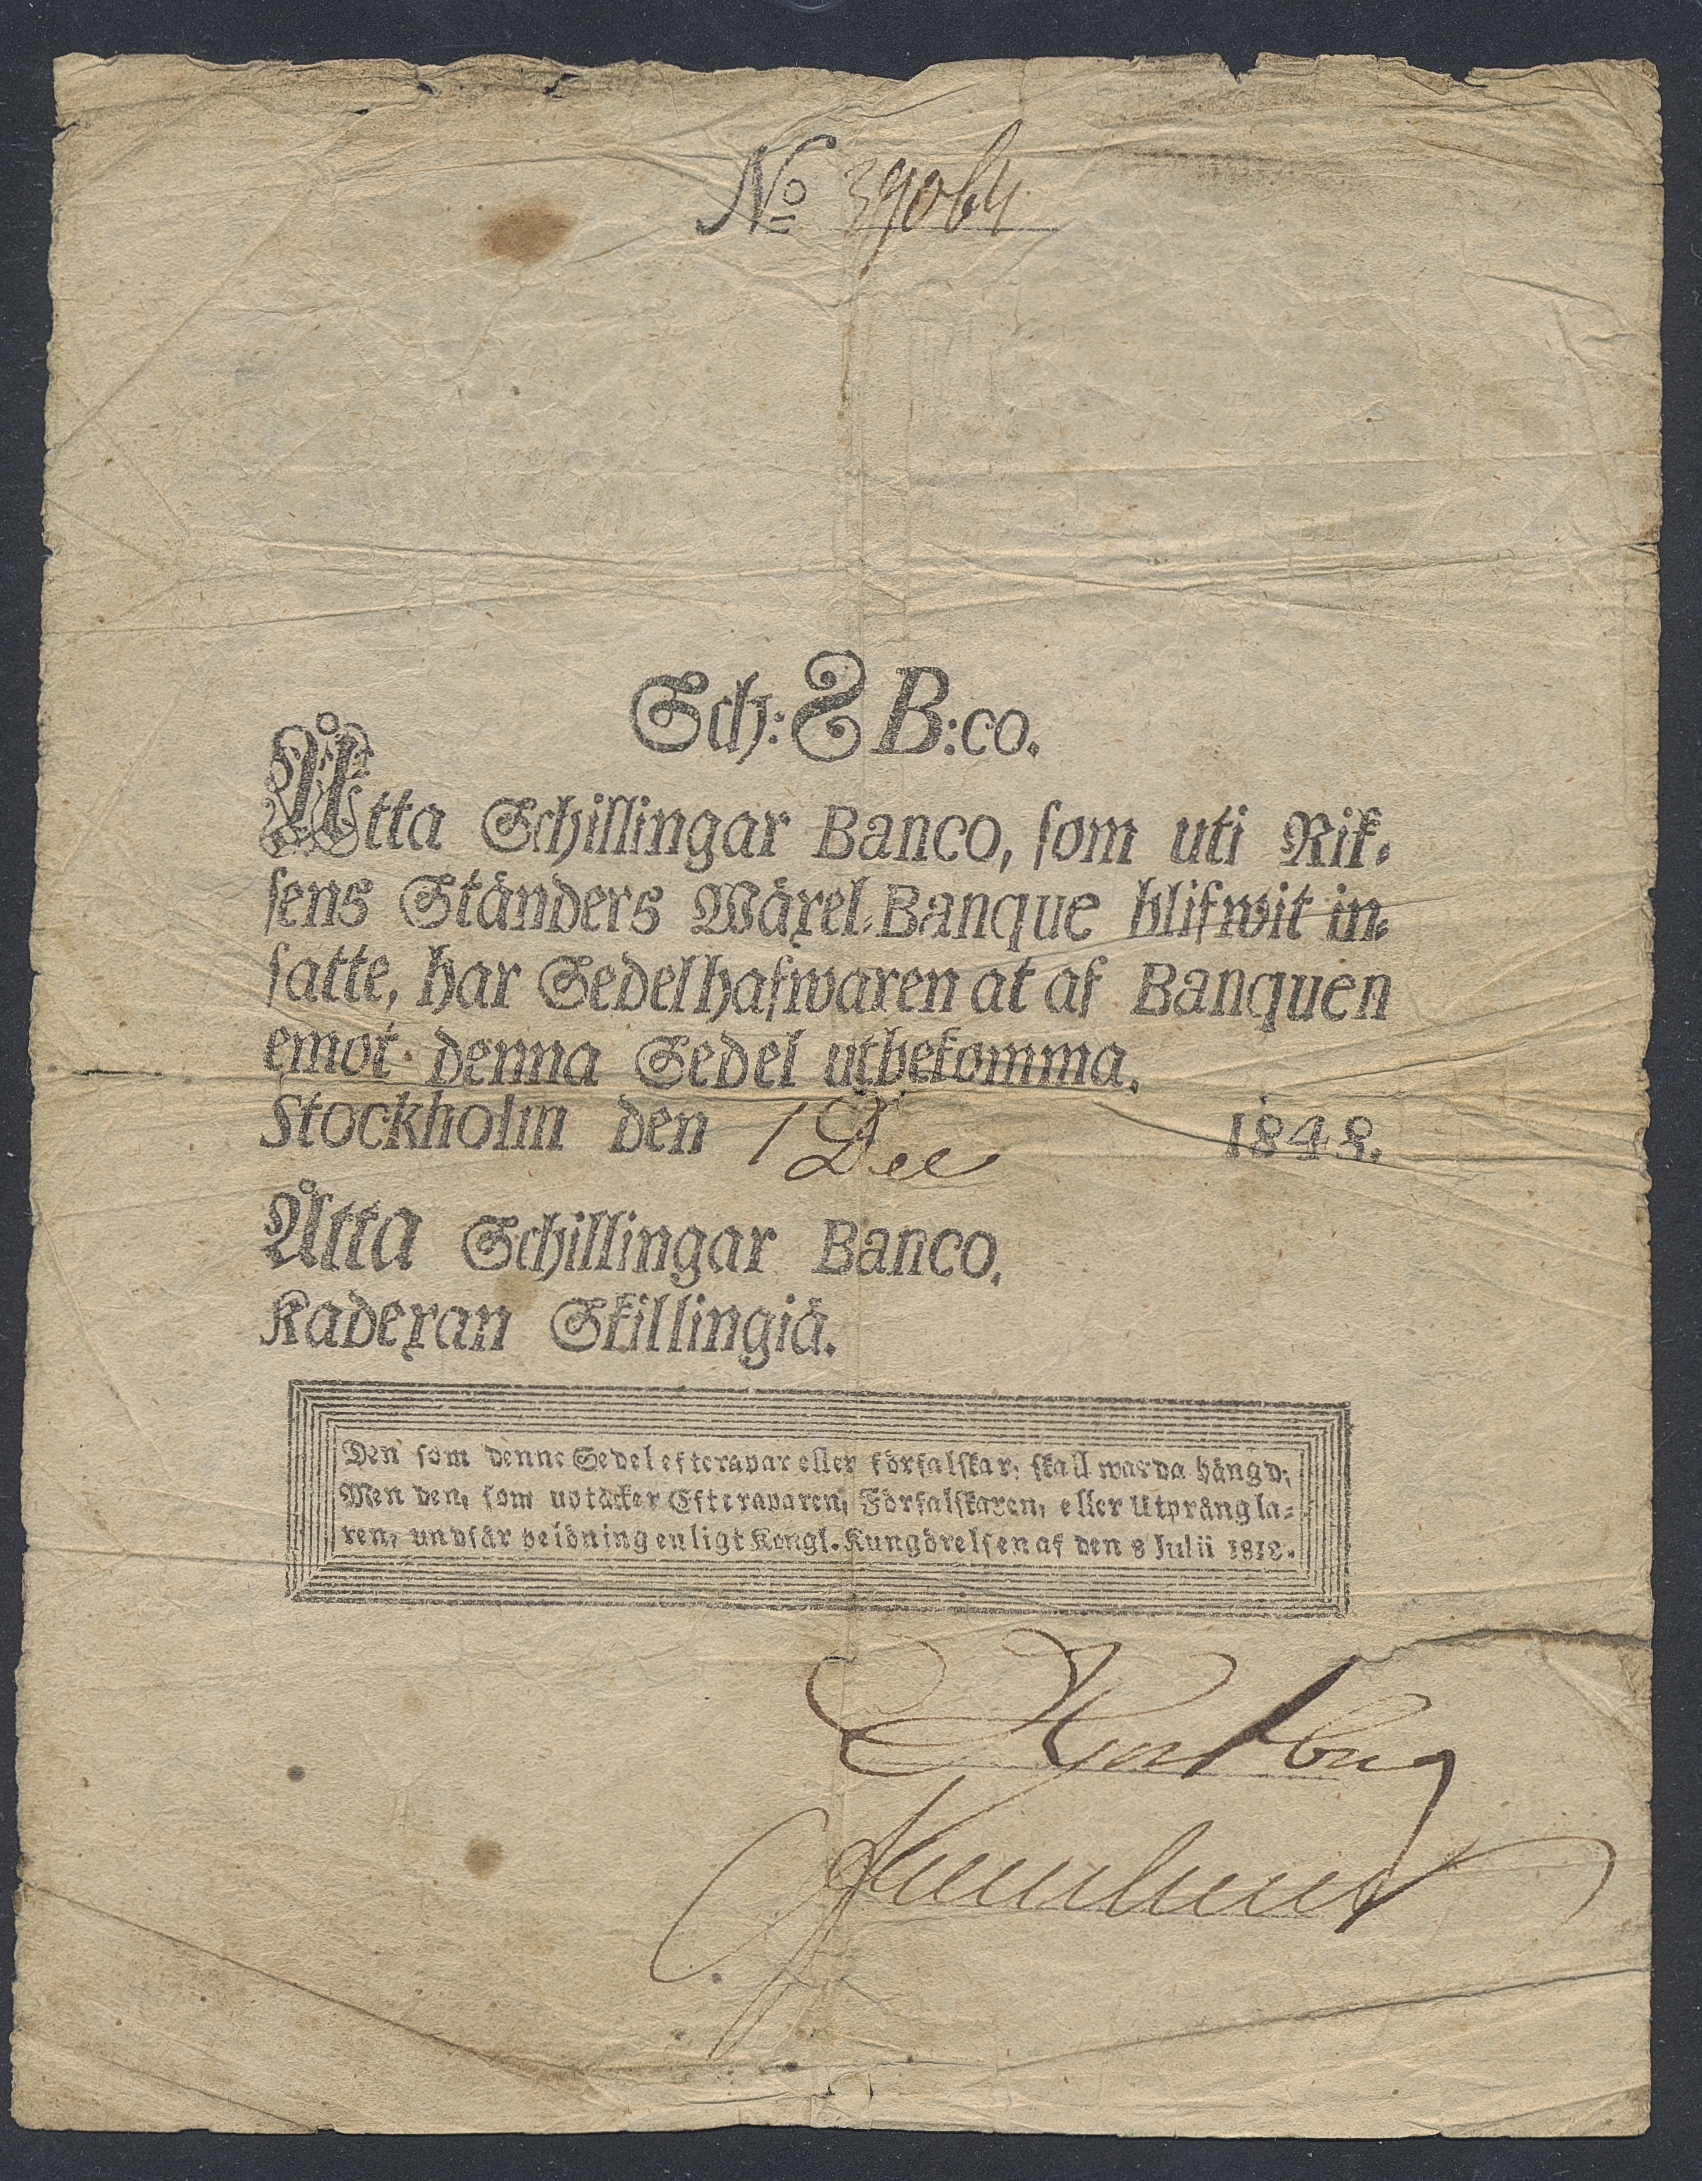 No 39064
Sch: 8 B:co.
Åtta Schillingar Banco, som uti Rik-
sens Ständers Wäxel-Banque blifwit in-
satte, har Sedelhafwaren at af Banquen
emot denna Sedel utbekomma.
Stockholm den 1 Dec 1848.
Åtta Schillingar Banco.
Kadexan Skillingiä.
Den som denne Sedel efterapar eller förfalskar, skall warda hängd;
Men den, som uptäcker Efteraparen, Förfalskaren, eller Utprångla-
ren, undfår belöning enligt Kongl. Kungörelsen af den 8 Julii 1818.